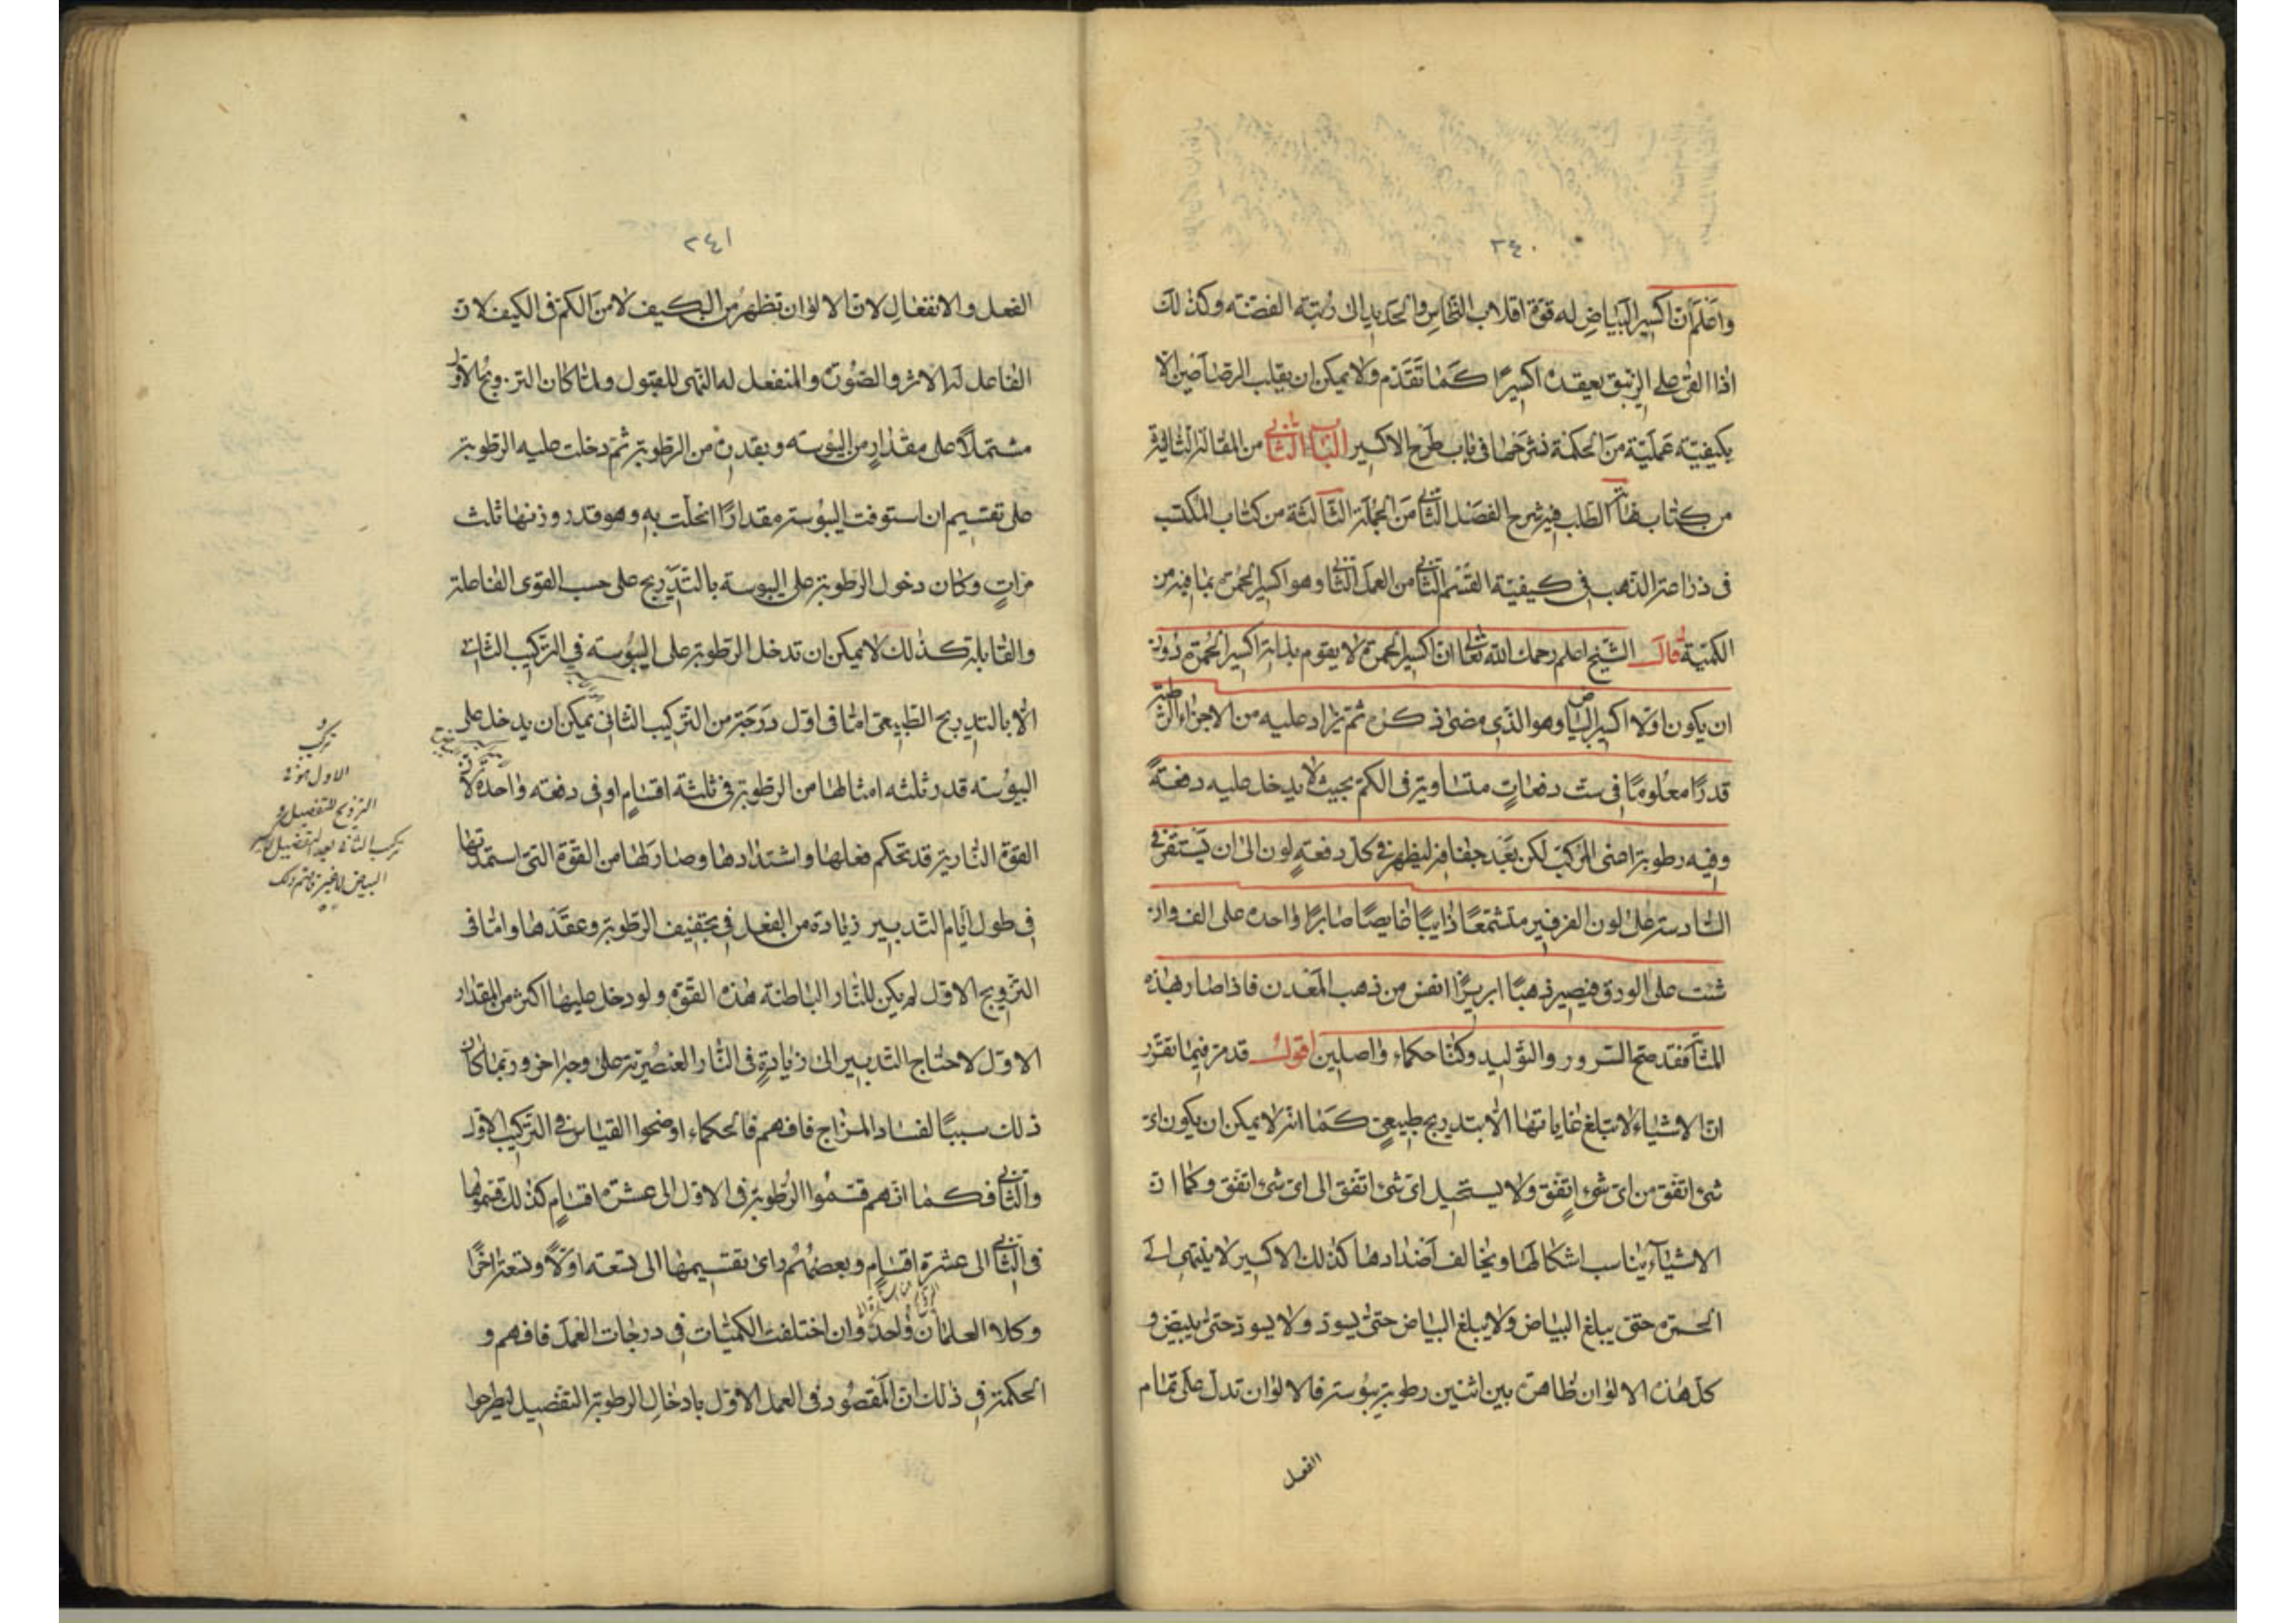 ٢٤٠
واعلم ان اكسير البياض له قوة اقلاب النحاس والحديد الى رتبة الفضة وكذلك
اذا القى على الزيبق يعقده اكسيرا كما تقدم ولا يمكن ان يقلب الرصاصين الا
بكيفية عملية من الحكمة نشرحها فى باب طرح الاكسير الباب الثانى من المقالة الثالثة
من كتاب نهاية الطلب فيه شرح الفصل الثانى من الجملة الثالثة من كتاب المكتسب
فى زراعة الذهب فى كيفية القسم الثانى من العمل الثانى وهو اكسير الحمرة بما فيه من
الكمية قال الشيخ اعلم رحمك الله تعالى ان اكسير الحمرة لا يقوم بذاته اكسير الحمرة دون
ان يكون اولا اكسير البياض وهو الذى مضى ذكره ثم يزاد عليه من الاجزاء الرطبة
قدرا معلوما فى ست دفعات متساوية فى الكم بحيث لا يدخل عليه دفعة
وفيه رطوبة اعنى المركب لكن بعد جفافه ليظهر فى كل دفعة لون الى ان يستقر فى
السادسة على لون الفرفير متشمعا ذايبا غايصا صابرا واحده على الف وان
شئت على الورق فيصير ذهبا ابريزا انفس من ذهب المعدن فاذا صار بهذه
المثابة فقد صح السرور والتوليد وكنا حكماء واصلين اقول قد مر فيما تقرر
ان الاشياء لا تبلغ غاياتها الا بتدريج طبيعى كما انه لا يمكن ان يكون اى
شئ اتفق من اى شئ اتفق ولا يستحيل اى شئ اتفق الى اى شئ اتفق وكما ان
الاشياء يناسب اشكالها ويخالف اضدادها كذلك الاكسير لا ينتهى الى
الحمرة حتى يبلغ البياض ولا يبلغ البياض حتى يسود ولا يسود حتى يبيض و
كل هذه الالوان ظاهرة بين اثنين رطوبة يبوسة فالالوان تدل على تمام
الفعل
٢٤١
الفعل والانفعال لان الالوان تظهر من الكيف لا من الكم فى الكيف لان
الفاعل له الاثر والصورة والمنفعل له التهى للقبول ولما كان التزويج الاول
مشتملا على مقدار من اليبوسة وبقدره من الرطوبة ثم دخلت عليه الرطوبة
على تقسيم ان استوفت اليبوسة مقدارا انحلت به وهو قدر وزنها ثلث
مرات وكان دخول الرطوبة على اليبوسة بالتدريج على حسب القوى الفاعلة
والقابلة كذلك لا يمكن ان تدخل الرطوبة على اليبوسة فى التركيب الثانى
الا بالتدريج الطبيعى اما فى اول درجة من التركيب الثانى يمكن ان يدخل على
اليبوسة قدر ثلثه امثالها من الرطوبة فى ثلثة اقسام او فى دفعة واحدة لان
القوة النارية قد تحكم فعلها واشتدادها وصار لها من القوة التى استمدتها
فى طول ايام التدبير زيادة من الفعل فى تجفيف الرطوبة وعقدها واما فى
التزويج الاول لم يكن للنار الباطنة هذه القوة ولو دخل عليها اكثر من المقدار
الاول لاحتاج التدبير الى زيادة فى النار العنصرية على وجه اخر وربما كان
ذلك سببا لفساد المزاج فافهم فالحكماء اوضحوا القياس فى التركيب الاول
والثانى فكما انهم قسموا الرطوبة فى الاول الى عشرة اقسام كذلك قسموها
فى الثانى الى عشرة اقسام وبعضهم راى تقسيمها الى تسعة اولا وتسعة اخرا
وكلا العلمان واحد وان اختلفت الكميات فى درجات العمل فافهم و
الحكمة فى ذلك ان المقصود فى العمل الاول بادخال الرطوبة التفصيل ليطرحوا
و
تركيب
الاول هو
التزويج للتفصيل و
تركيب الثانى بعد التفصيل